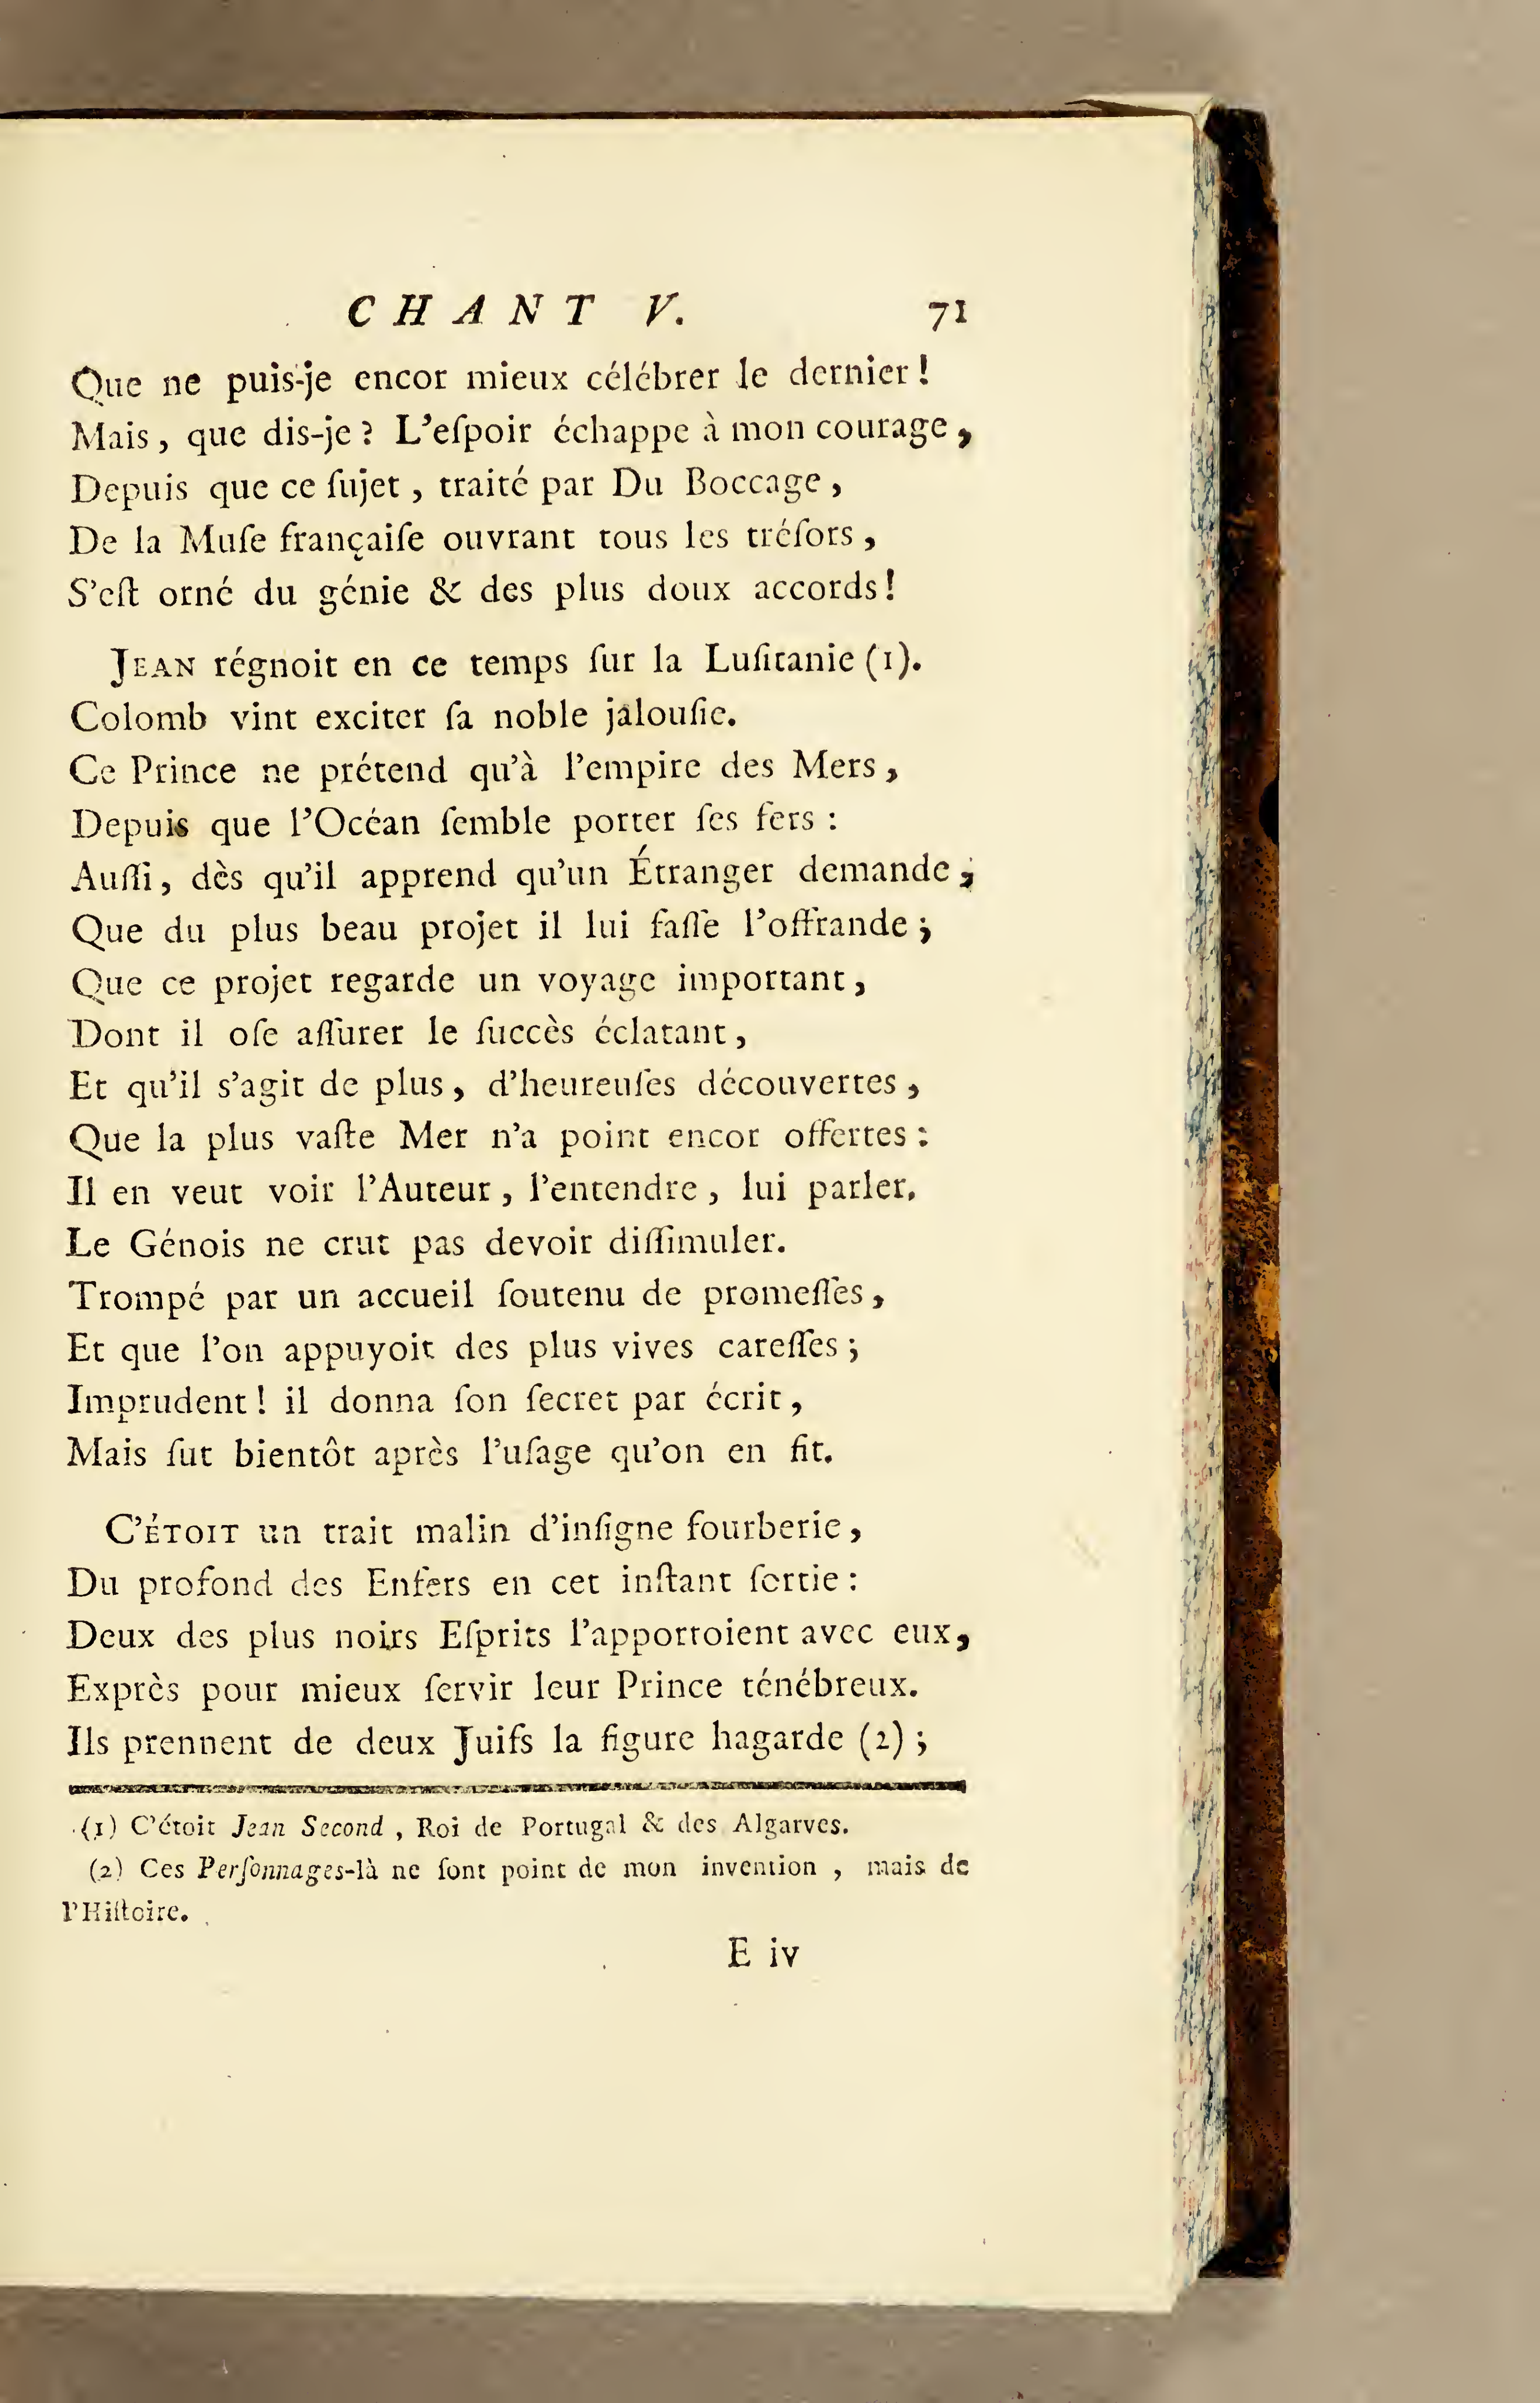 CHANT V. 71
Que ne puis-je encor mieux célébrer le dernier !
Mais, que dis-je ? L'eſpoir échappe à mon courage,
Depuis que ce ſujet, traité par Du Boccage,
De la Muſe françaiſe ouvrant tous les tréſors,
S'eſt orné du génie & des plus doux accords !
JEAN régnoit en ce temps ſur la Luſitanie (1).
Colomb vint exciter ſa noble jalouſie.
Ce Prince ne prétend qu'à l'empire des Mers,
Depuis que l'Océan ſemble porter ſes fers :
Auſſi, dès qu'il apprend qu'un Étranger demande,
Que du plus beau projet il lui faſſe l'offrande ;
Que ce projet regarde un voyage important,
Dont il oſe aſſurer le ſuccès éclatant,
Et qu'il s'agit de plus, d'heureuſes découvertes,
Que la plus vaſte Mer n'a point encor offertes :
Il en veut voir l'Auteur, l'entendre, lui parler.
Le Génois ne crut pas devoir diſſimuler.
Trompé par un accueil ſoutenu de promeſſes,
Et que l'on appuyoit des plus vives careſſes ;
Imprudent ! il donna ſon ſecret par écrit,
Mais ſut bientôt après l'uſage qu'on en fit.
C'ÉTOIT un trait malin d'inſigne fourberie,
Du profond des Enfers en cet inſtant ſortie :
Deux des plus noirs Eſprits l'apportoient avec eux,
Exprès pour mieux ſervir leur Prince ténébreux.
Ils prennent de deux Juifs la figure hagarde (2) ;
(1) C'étoit Jean Second, Roi de Portugal & des Algarves.
(2) Ces Perſonnages-là ne ſont point de mon invention, mais de
l'Hiſtoire.
E iv